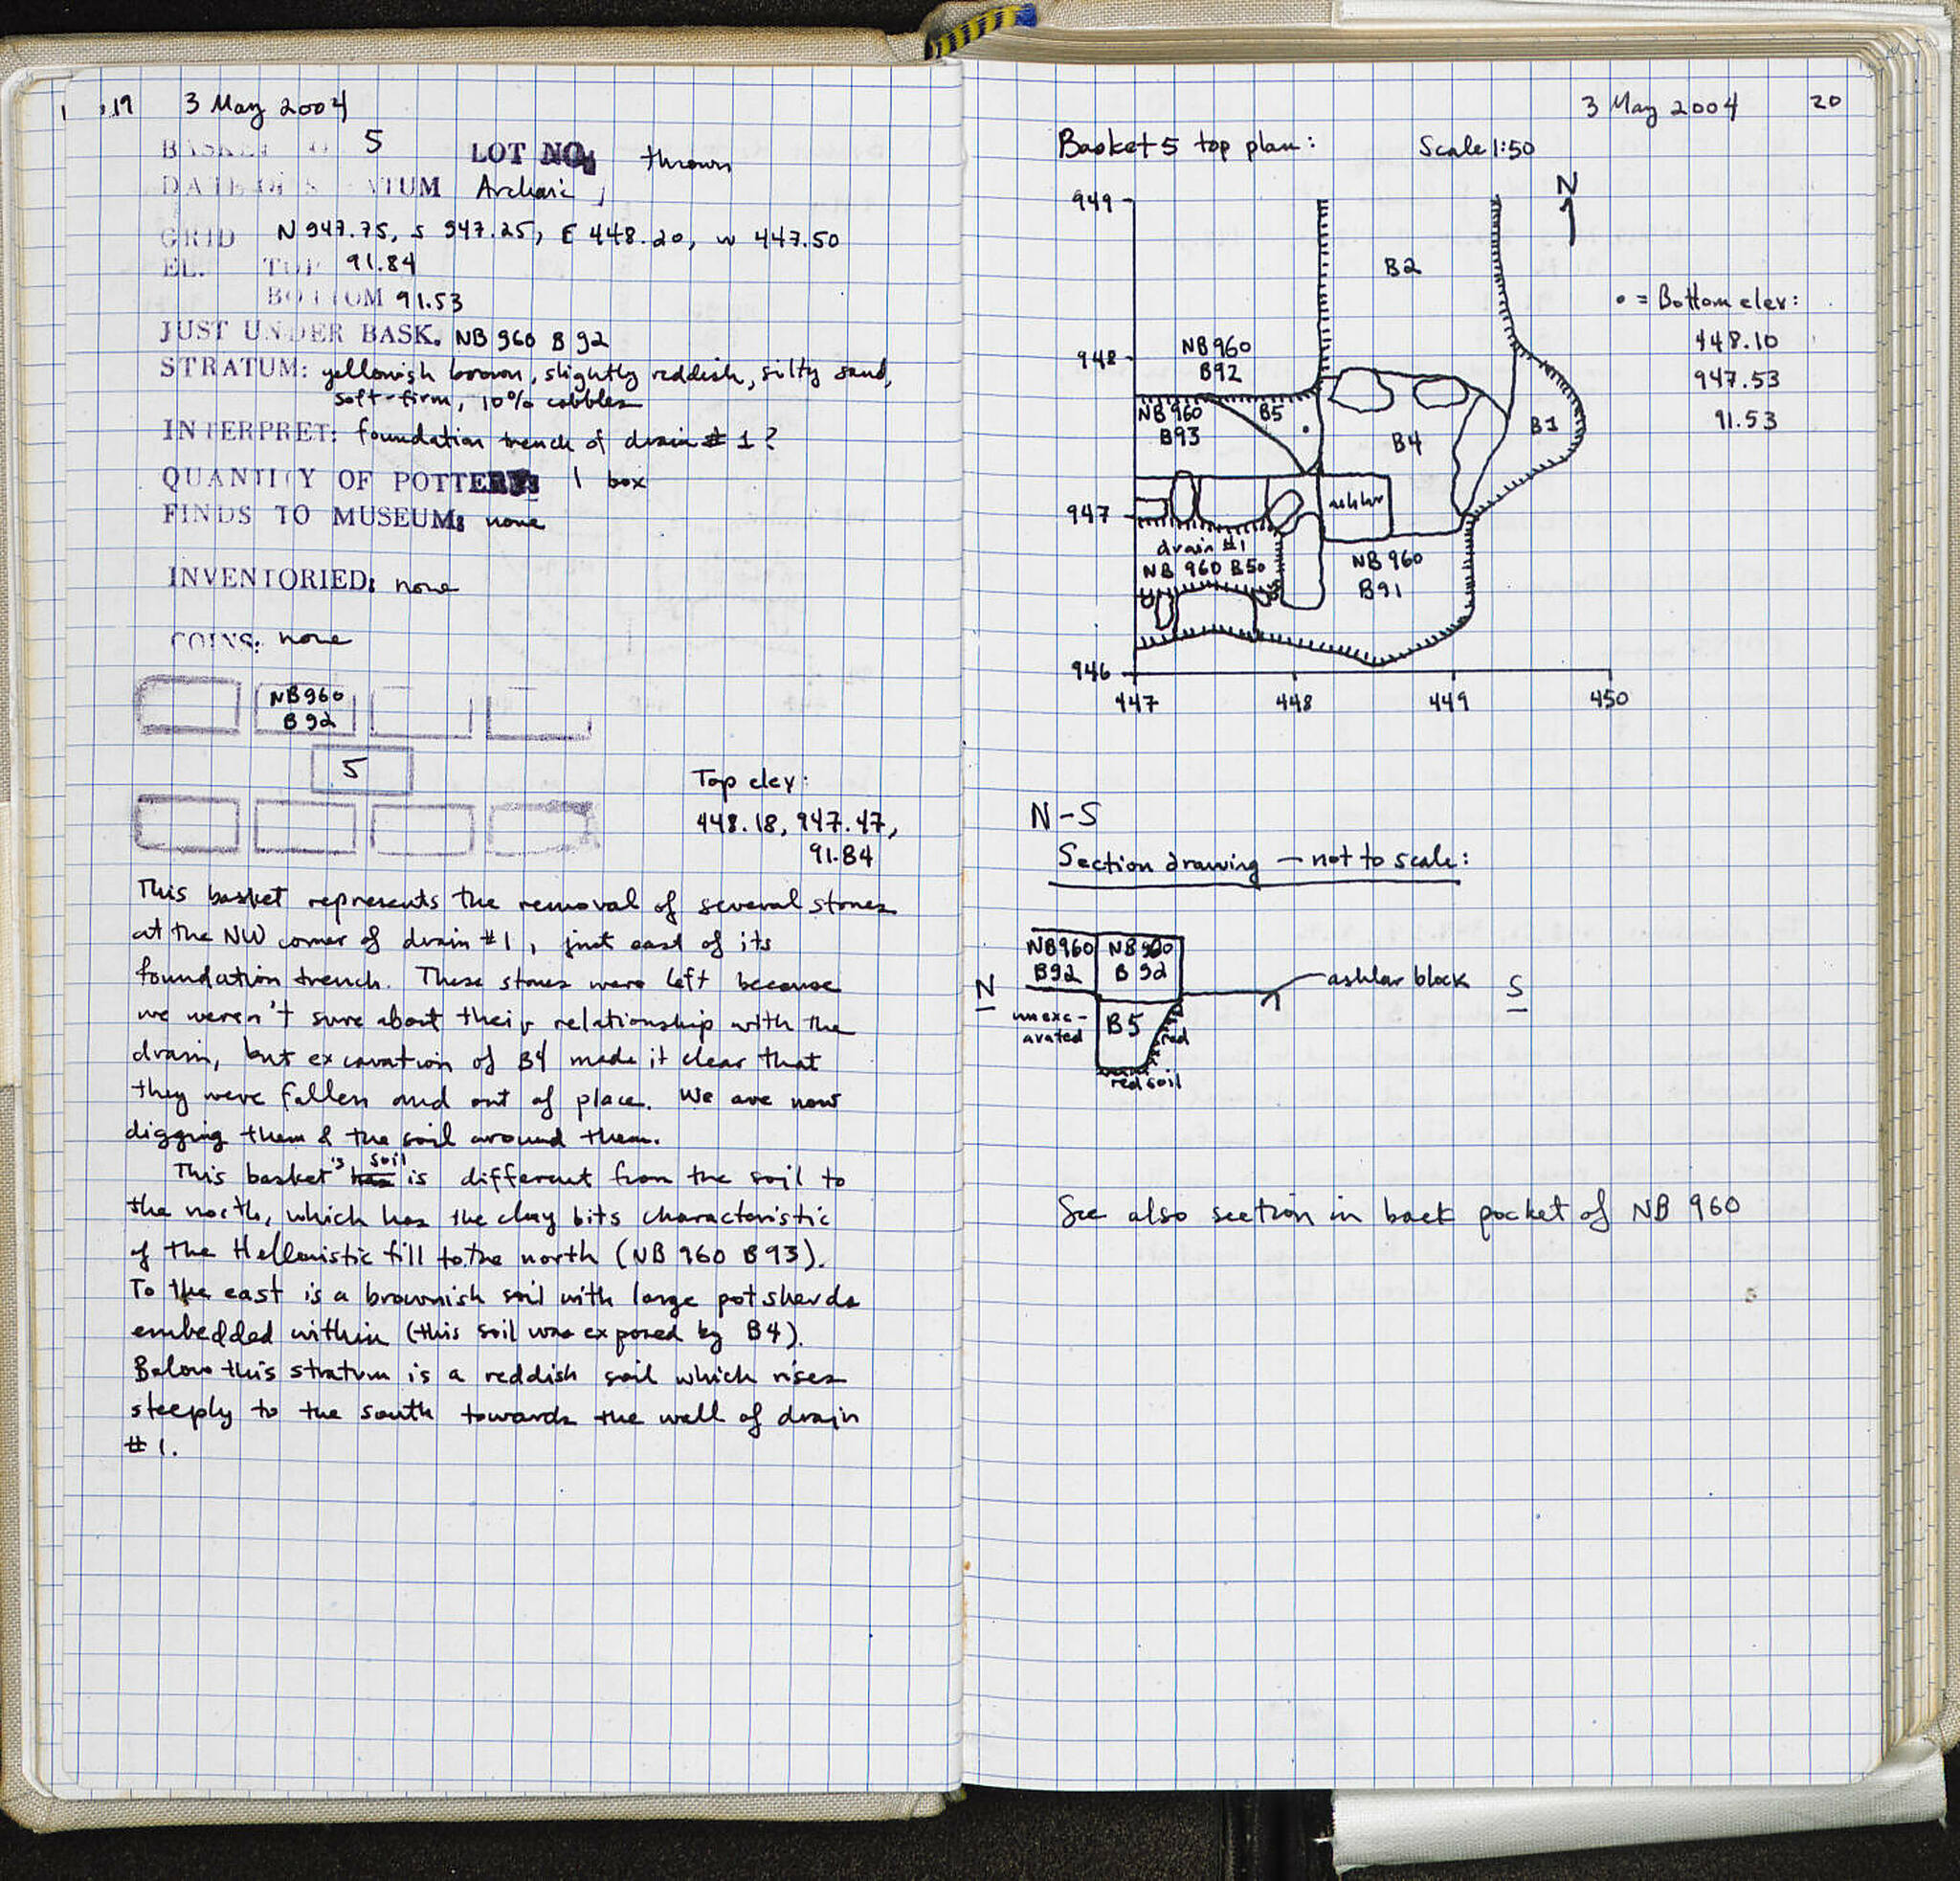 19 3 May 2004
BASKET NO 5 LOT NO. thrown
DATE OF STRATUM Archaic
GRID N 947.75, S 947.25, E 448.20, W 447.50
EL. TOP 91.84
BOTTOM 91.53
JUST UNDER BASK. NB 960 B 92
STRATUM: yellowish brown, slightly reddish, silty sand,
soft-firm, 10% cobbles
INTERPRET: foundation trench of drain #1?
QUANTITY OF POTTERY: 1 box
FINDS TO MUSEUM: none
INVENTORIED: none
COINS: none
NB 960
B 92
5
Top elev:
448.18, 947.47,
91.84
This basket represents the removal of several stones
at the NW corner of drain #1, just east of its
foundation trench. These stones were left because
we weren't sure about their relationship with the
drain, but excavation of B4 made it clear that
they were fallen and out of place. We are now
digging them & the soil around them.
This basket's soil is different from the soil to
the north, which has the clay bits characteristic
of the Hellenistic fill to the north (NB 960 B 93).
To the east is a brownish soil with large pot sherds
embedded within (this soil was exposed by B4).
Below this stratum is a reddish soil which rises
steeply to the south towards the wall of drain
#1.
3 May 2004 20
Basket 5 top plan: Scale 1:50
N
949
B2
• = Bottom elev:
448.10
947.53
91.53
948
NB 960
B92
NB 960
B93
B5
B4
B1
947
ashlar
drain #1
NB 960 B50
NB 960
B91
946
447 448 449 450
N-S
Section drawing - not to scale:
NB 960
B92
NB 960
B 92
N
ashlar block
S
unexc-
avated
B5
red
red soil
See also section in back pocket of NB 960